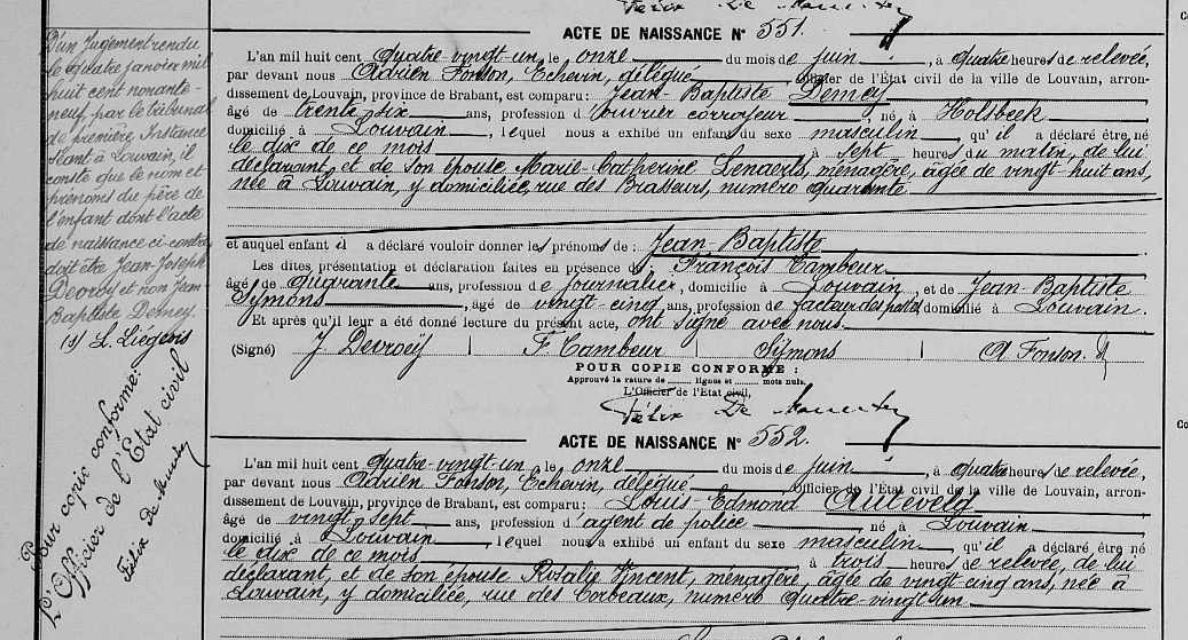 Félix De
ACTE DE NAISSANCE N° 551.
L'an mil huit cent quatre-vingt-un, le onze du mois de juin, à quatre heures de relevée,
par devant nous Adrien Fonson, Echevin, délégué Officier de l'État civil de la ville de Louvain, arron-
dissement de Louvain, province de Brabant, est comparu: Jean-Baptiste Demey
âgé de trente six ans, profession d'ouvrier corroyeur, né à Holsbeek
domicilié à Louvain, lequel nous a exhibé un enfant du sexe masculin, qu'il a déclaré être né
le dix de ce mois à sept heures du matin, de lui
déclarant, et de son épouse Marie-Catherine Lenaerts, ménagère, âgée de vingt-huit ans,
née à Louvain, y domiciliée, rue des Brasseurs, numéro quarante
et auquel enfant il a déclaré vouloir donner les prénoms de: Jean-Baptiste
Les dites présentation et déclaration faites en présence de François Tambeur
âgé de quarante ans, profession de journalier, domicilié à Louvain, et de Jean-Baptiste
Symons, âgé de vingt-cinq ans, profession de facteur des postes, domicilié à Louvain.
Et après qu'il leur a été donné lecture du présent acte, ont signé avec nous.
(Signé) J. Devroeÿ | F. Tambeur | Symons | A. Fonson.
POUR COPIE CONFORME:
Approuvé la rature de lignes et mots nuls.
L'Officier de l'Etat civil,
Félix De
D'un jugement rendu
le quatre janvier mil
huit cent nonante-
neuf, par le tribunal
de première Instance
séant à Louvain, il
conste que le nom et
prénoms du père de
l'enfant dont l'acte
de naissance ci-contre
doit être Jean-Joseph
Devroey et non Jean
Baptiste Demey.
(s) L. Liégeois
Pour copie conforme:
L'Officier de l'État civil
Félix De
ACTE DE NAISSANCE N° 552.
L'an mil huit cent quatre-vingt-un, le onze du mois de juin, à quatre heures de relevée,
par devant nous Adrien Fonson, Echevin, délégué Officier de l'État civil de la ville de Louvain, arron-
dissement de Louvain, province de Brabant, est comparu: Louis-Edmond Auteveld
âgé de vingt-sept ans, profession d'agent de police né à Louvain
domicilié à Louvain, lequel nous a exhibé un enfant du sexe masculin, qu'il a déclaré être né
le dix de ce mois à trois heures de relevée, de lui
déclarant, et de son épouse Rosalie Vincent, ménagère, âgée de vingt cinq ans, née à
Louvain, y domiciliée, rue des Corbeaux, numéro quatre-vingt un